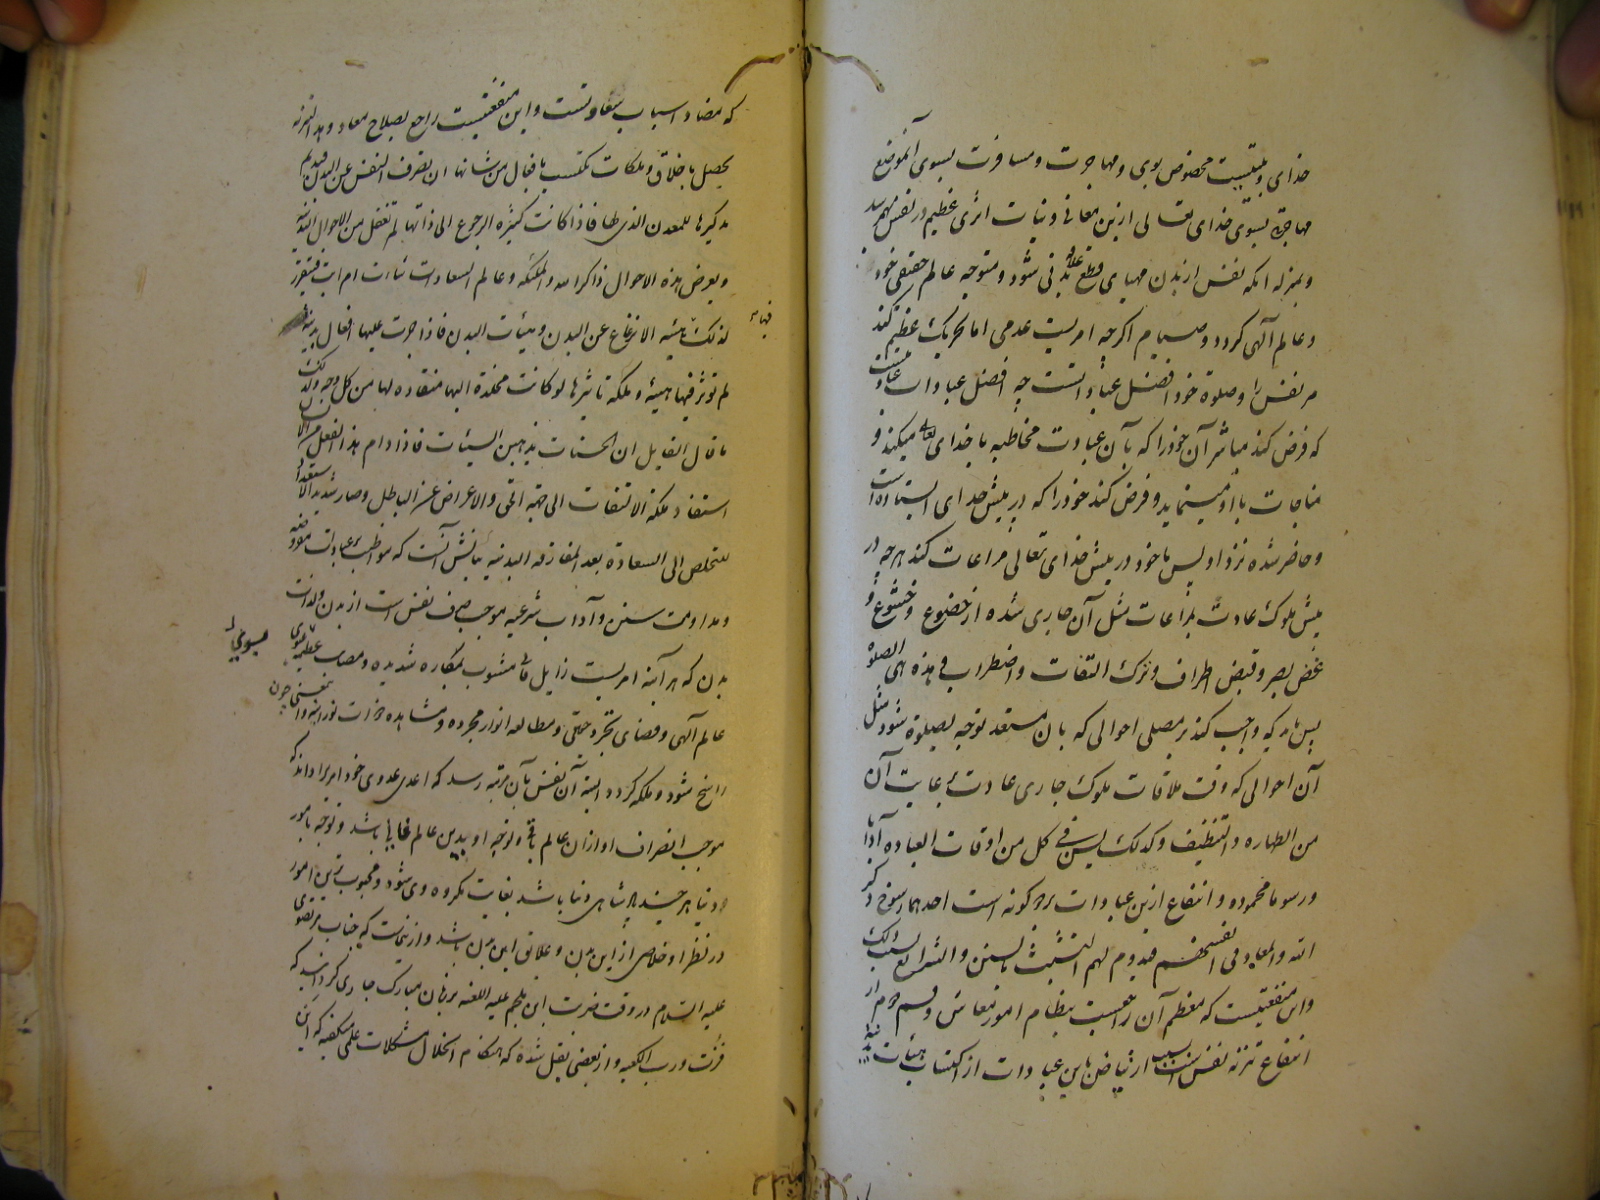 خدای و بیتیست مخصوص بوی و مهاجرت و مسافرت بسوی آنموضع
مهاجرة بسوی خدای تعالی ازین معانی و نیات اثری عظیم در نفس بهم رسد
و بمنزله انکه نفس از بدن مهیای قطع علاقه بدنی شود و متوجه عالم حقیقی خود
و عالم آلهی کردد و صیام اکرچه امریست عدمی اما تحریک عظیم کند
مر نفس را و صلوة خود افضل عباداتست چه افضل عبادات عبادتیست
که فرض کند مباشر آن خود را که بآن عبادت مخاطبه با خدای تعالی میکند و
مناجات با او مینماید و فرض کند خود را که در پیش خدای ایستاده است
و حاضر شده نزد او پس با خود در پیش خدای تعالی مراعات کند هرچه در
پیش ملوک عادت بمراعات مثل آن جاری شده از خضوع و خشوع و
غض بصر و قبض اطراف و ترک التفات و اضطراب فی هذه هی الصلوة
پس شارع که واجب کند بر مصلی احوالی که بان مستعد توجه بصلوة شود مثل
آن احوالی که وقت ملاقات ملوک جاری عادت برعایت آن
من الطهاره و التنظیف و کذلک یسن فی کل من اوقات العباده آدابا
و رسوما محموده و انتفاع ازین عبادات بر دو کونه است احدهما رسوخ ذکر
الله و المعاد فی انفسهم فیدوم لهم التشبث بالسنن و الشرایع بسبب ذلک
و این منفعتیست که معظم آن راجعست بنظام امور معاش و قسم دوم از
انتفاع تنزه نفس انسانست بسبب ارتیاض باین عبادات از اکتساب هیئات بدنیه
که مضاد اسباب سعادتست و این منفعتیست راجع بصلاح معاد و هذا التنزه
یحصل باخلاق و ملکات تکتسب بافعال من شانها ان یصرف النفس عن البدن فیدیم
تذکیرها للمعدن الذی لها فاذا کانت کثیره الرجوع الی ذاتها لم تنفعل من الاحوال البدنیه
و یعرض هذه الاحوال ذاکرا الله و الملئکه و عالم السعادت شاءت ام ابت فیتقرر
لذلک هیئیه الانزعاج عن البدن و هیئات البدن فاذا جرت علیها افعال بدنیه
فیها
لم تؤثر فیها هیئة و ملکة تاثیرها لو کانت مخلدة الیها منقاده لها من کل وجه و لذلک
ما قال القایل ان الحسنات یذهبن السیئات فاذا دام هذا الفعل من الانسان
استفاد ملکة الالتفات الی جهة الحق و الاعراض عن الباطل و صار شدید الاستعداد
للتخلص الی السعادة بعد المفارقه البدنیه بیانش آنست که مواظبت بر عبادات
و مداومت سنن و آداب شرعیه موجب صرف نفس است از بدن و لذات
بدن که هر آینه امریست زایل فانی مشوب بمکاره شدیده و مصایب عظیمه بسوی
بسوی
عالم آلهی و فضای تجرد عقلی و مطالعه انوار مجرده و مشاهده ذوات نورانیه و این معنی چون
راسخ شود و ملکه کردد البته آن نفس بآن مرتبه رسد که اعدی عدوی خود امری را داند که
موجب انصراف او از ان عالم باقی و توجه او بدین عالم فانی باشد و توجه بامور
دنیا هر چند پادشاهی دنیا باشد بغایت مکروه وی شود و محبوب ترین امور
در نظر او خلاصی از این بدن و علایق این بدن باشد و ازینجاست که جناب مرتضوی
علیه السلام در وقت ضربت ابن ملجم علیه اللعنه بر زبان مبارک جاری کردانید که
فزت و رب الکعبه و از بعضی نقل شده که هنکام انحلال مشکلات علمی میکفته که این